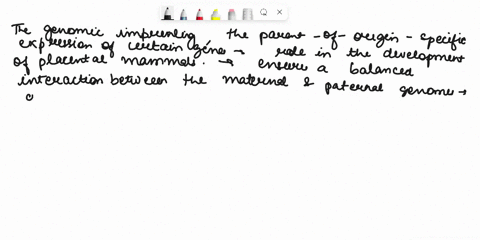 The genomic imprinting the parent-of-origin-specific
expression of certain gene → role in the development
of placental mammals. → ensure a balanced
interaction between the maternal & paternal genome →